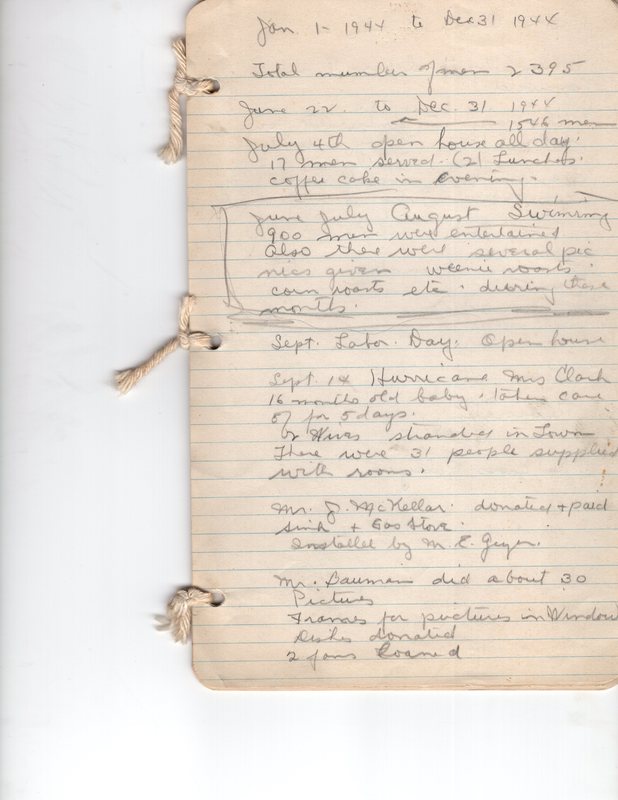 Jan 1- 1944 to Dec 31 1944
Total number of men 2395
June 22 to Dec. 31 1944
1546 men
July 4th open house all day.
17 men served. (2) Lunches.
coffee cake in evening.
June July August Swimming
900 men were entertained
Also there were several pic
nics given weenie roasts.
corn roasts etc. during these
months.
Sept. Labor. Day. Open house
Sept. 14 Hurricane Mrs Clark
16 months old baby. taken care
of for 5 days.
Wives stranded in Town
There were 31 people supplied
with rooms.
Mr. J. McKellar. donated + paid
sink + Gas Stove.
Installed by M. E. Geyer.
Mr. Bauman did about 30
Pictures
Frames for pictures in Window
Dishes donated
2 fans loaned